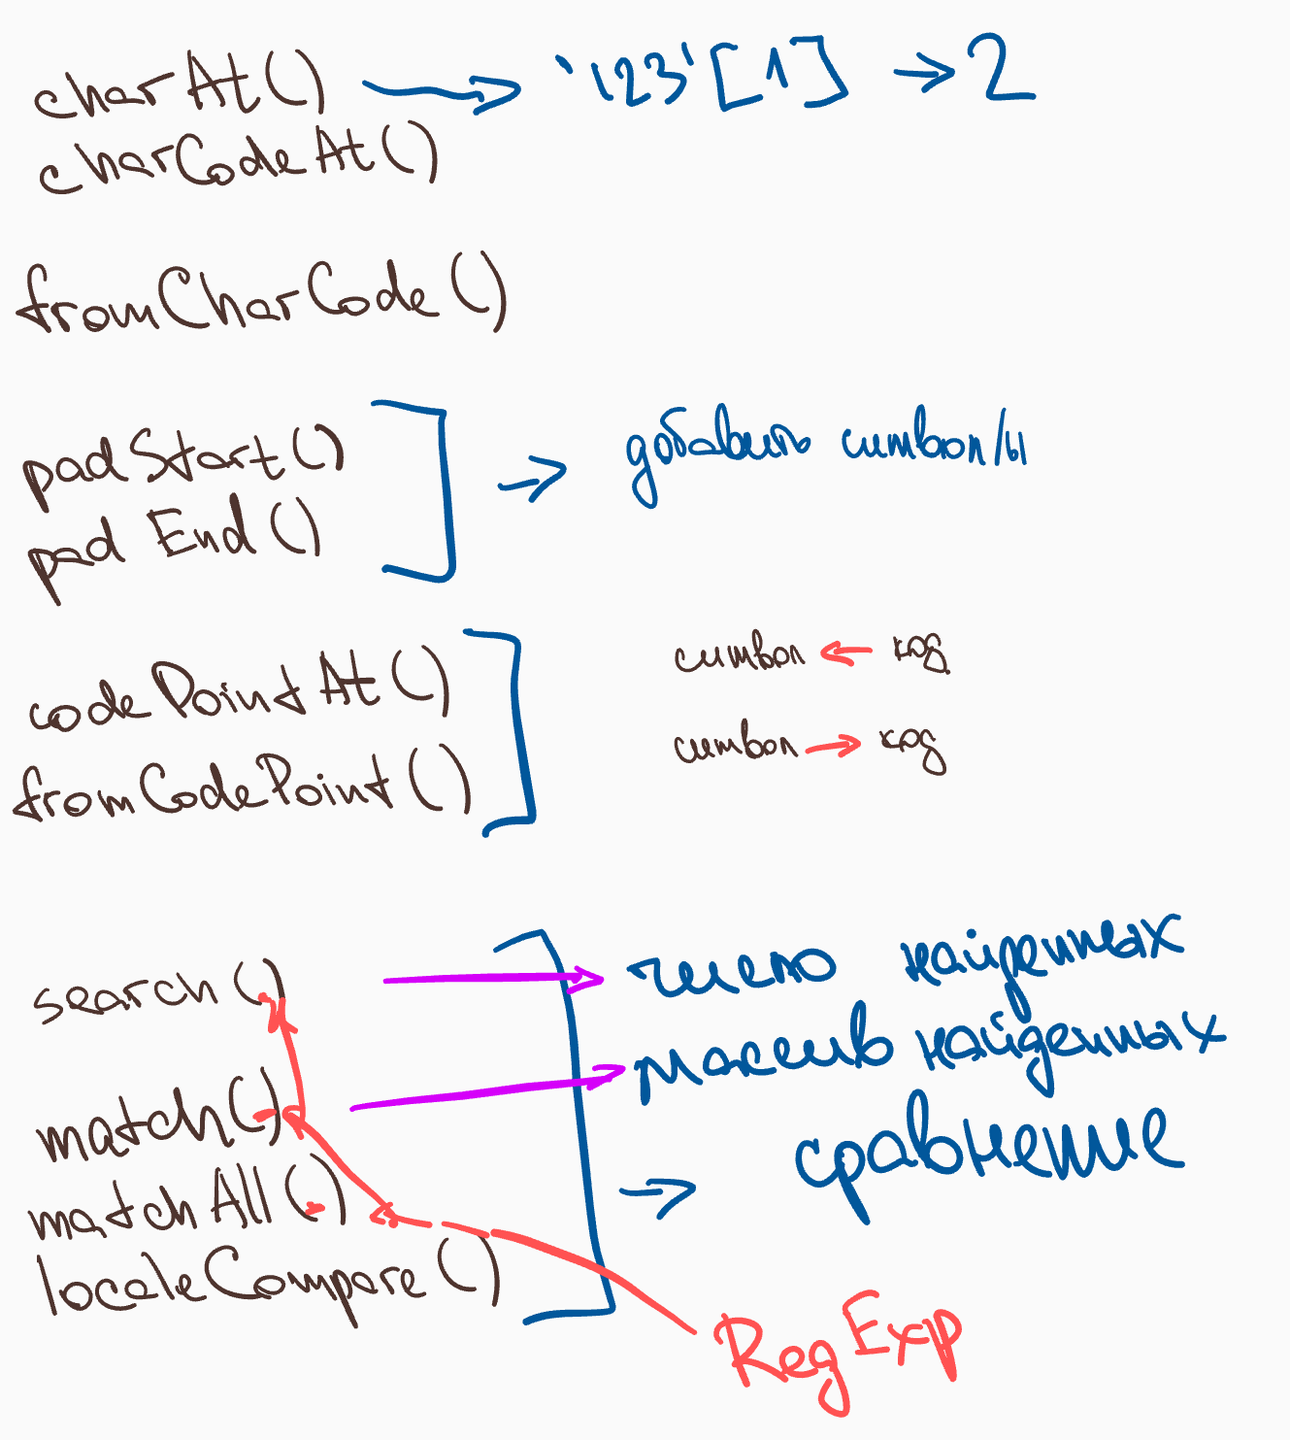 charAt() → '123'[1] → 2
charCodeAt()
fromCharCode()
padStart()
padEnd()
→ добавить символ/ы
codePointAt()
fromCodePoint()
символ ← код
символ → код
search() → число найденных
match() → массив найденных
matchAll()
localeCompare()
→ сравнение
RegExp